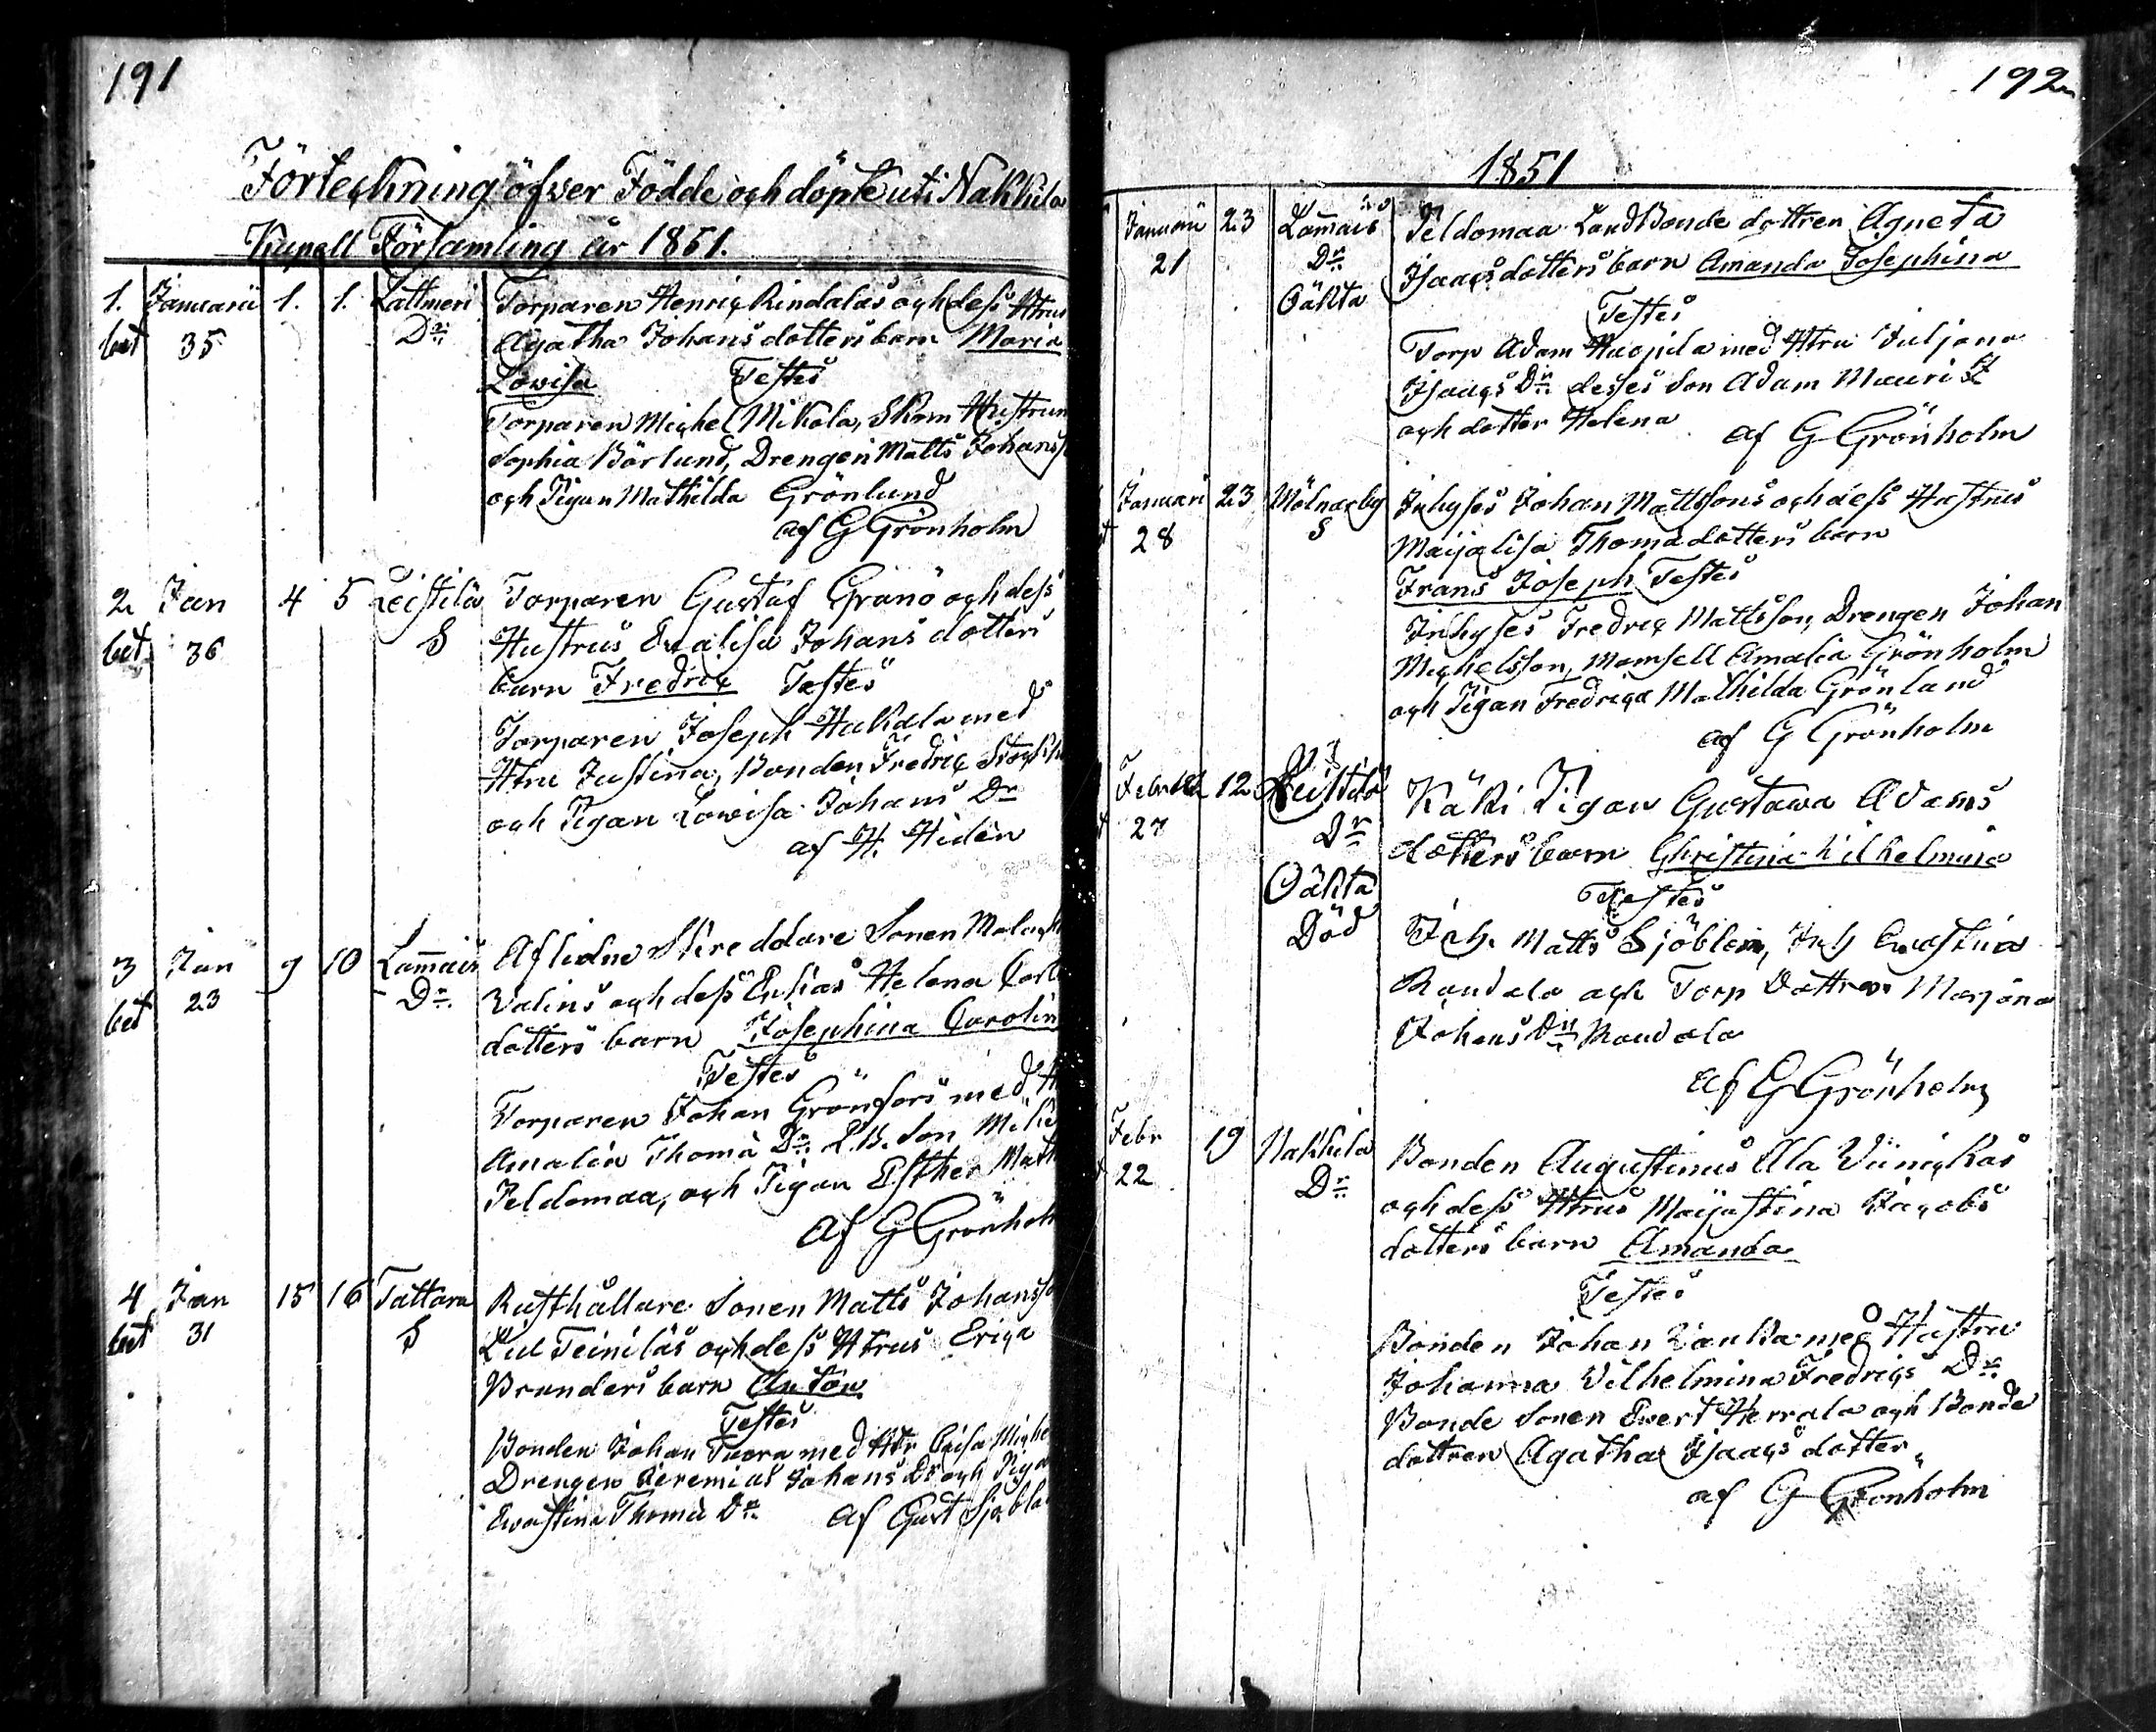 191
Förteckning öfver Födde och döpte uti Nakkila
Kapell Församling år 1851.
1. Januarii 1. 1. Lattmeri Torparen Henric Rindalas och dess Htrus
bet 35 Dr. Agatha Johans dotters barn Maria
Lovisa Testes
Torparen Michel Mikola, Skom Hustrun
Sophia Börlund, Drengen Matts Johanss
och Pigan Mathilda Grönlund
af G Grönholm
2 Jan 4 5 Leistilä Torparen Gustaf Granö och dess
bet 36 S Hustrus Evalisa Johans dotters
barn Fredric Testes
Torparen Joseph Hakala med
Htru Justina, Bonden Fredric
och Pigan Lowisa Johans Dr
af H. Hidén
3 Jan 9 10 Lammais Aflidne Skreddare Sonen
bet 23 Dr. Valins och dess Enkas Helena Carls
dotters barn Josephina Carolin
Testes
Torparen Johan Grönfors med H
Amalia Thomä Dr. L.B. Son Mike
Peldomaa, och Pigan Esther Math
af G Grönhol
4 Jan 15 16 Tattara Rusthållare Sonen Matts Johansso
bet 31 S Lill Teinilås och dess Htrus Erica
Branders barn Anton
Testes
Bonden Johan Tuora med Htr Caisa Miche
Drengen Jeremias Johans Dr och Piga
Evastina Thomä Dr. af Gust Sjöblo
192
1851
Januari 23 Lamais Peldomaa Landbonde dottren Agneta
21 Dr. Isaacs dotters barn Amanda Josephina
Oäkta Testes
Torp Adam Huopila med Htru Juljana
Isaacs Dr. desses Son Adam Mauritz
och dotter Helena af G Grönholm
Januari 23 Mölnarby Inhyses Johan Mattssons och dess Hustrus
28 S Maijalisa Thomä dotters barn
Frans Joseph Testes
Inhyses Fredric Mattsson, Drengen Johan
Michelsson, Mamsell Amalia Grönholm
och Pigan Fredrica Mathilda Grönlund
af G Grönholm
Febr 12 Leistilä Käki Pigan Gustawa Adams
27 Dr dotters barn Christina Wilhelmina
Oäkta Testes
Död Inh. Matts Sjöblom, Inh Evastina
Randala och Torp Dottren Marjana
Johans Dr Randala
af G Grönholm
Febr 19 Nakkila Bonden Augustinus Ala Viinickas
22 Dr. och dess Htrus Maijastina Jacobs
dotters barn Amanda
Testes
Bonden Johan med Hustru
Johanna Vilhelmina Fredrics Dr.
Bonde Sonen Evert Herrala och Bonde
dottren Agatha Isaacs dotter
af G Grönholm